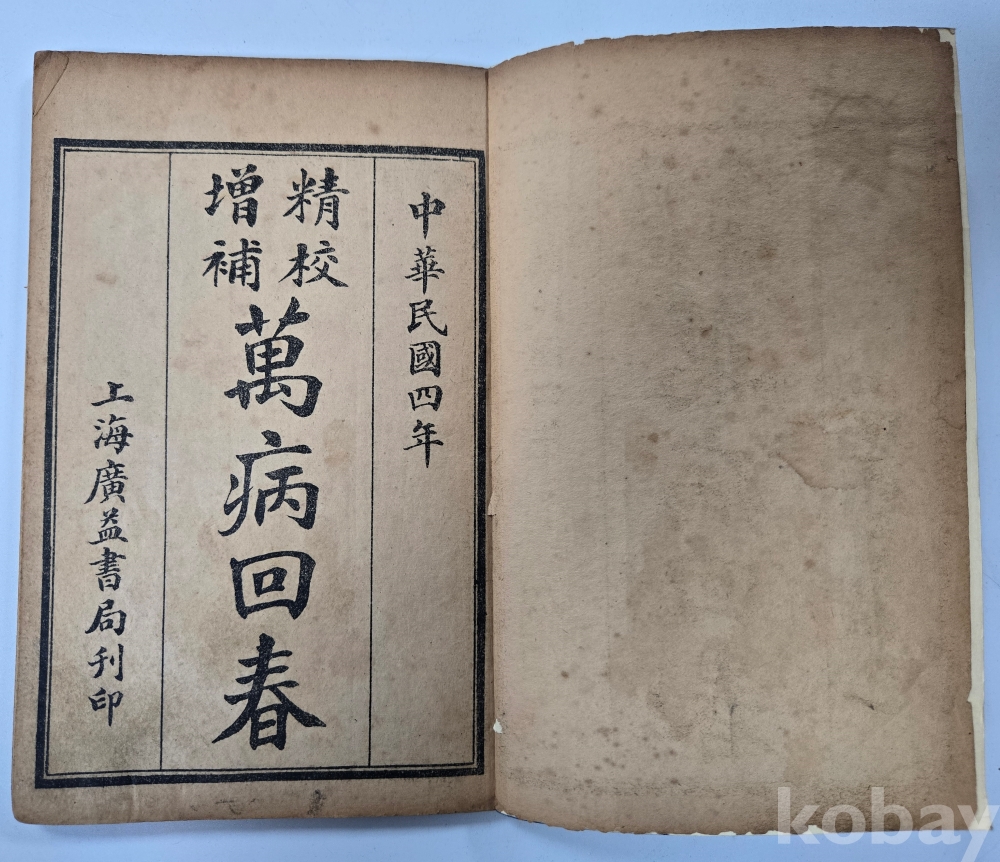 中華民國四年
精校
增補
萬病回春
上海廣益書局刊印
kobay